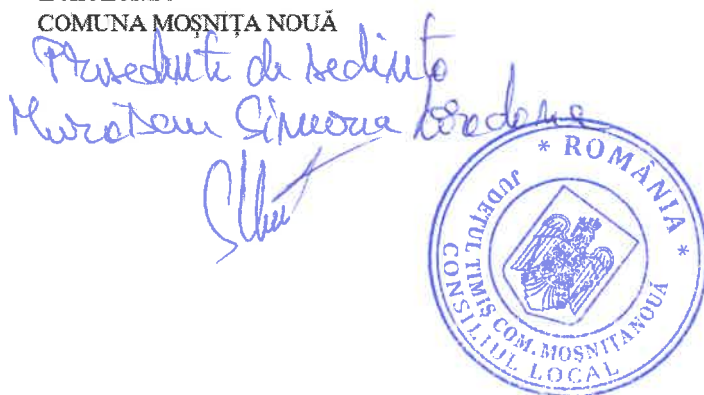 COMUNA MOȘNIȚA NOUĂ
Președinte de ședință
Simona Loredana
* ROMÂNIA *
JUDEȚUL TIMIȘ
COM. MOȘNIȚA NOUĂ
CONSILIUL LOCAL